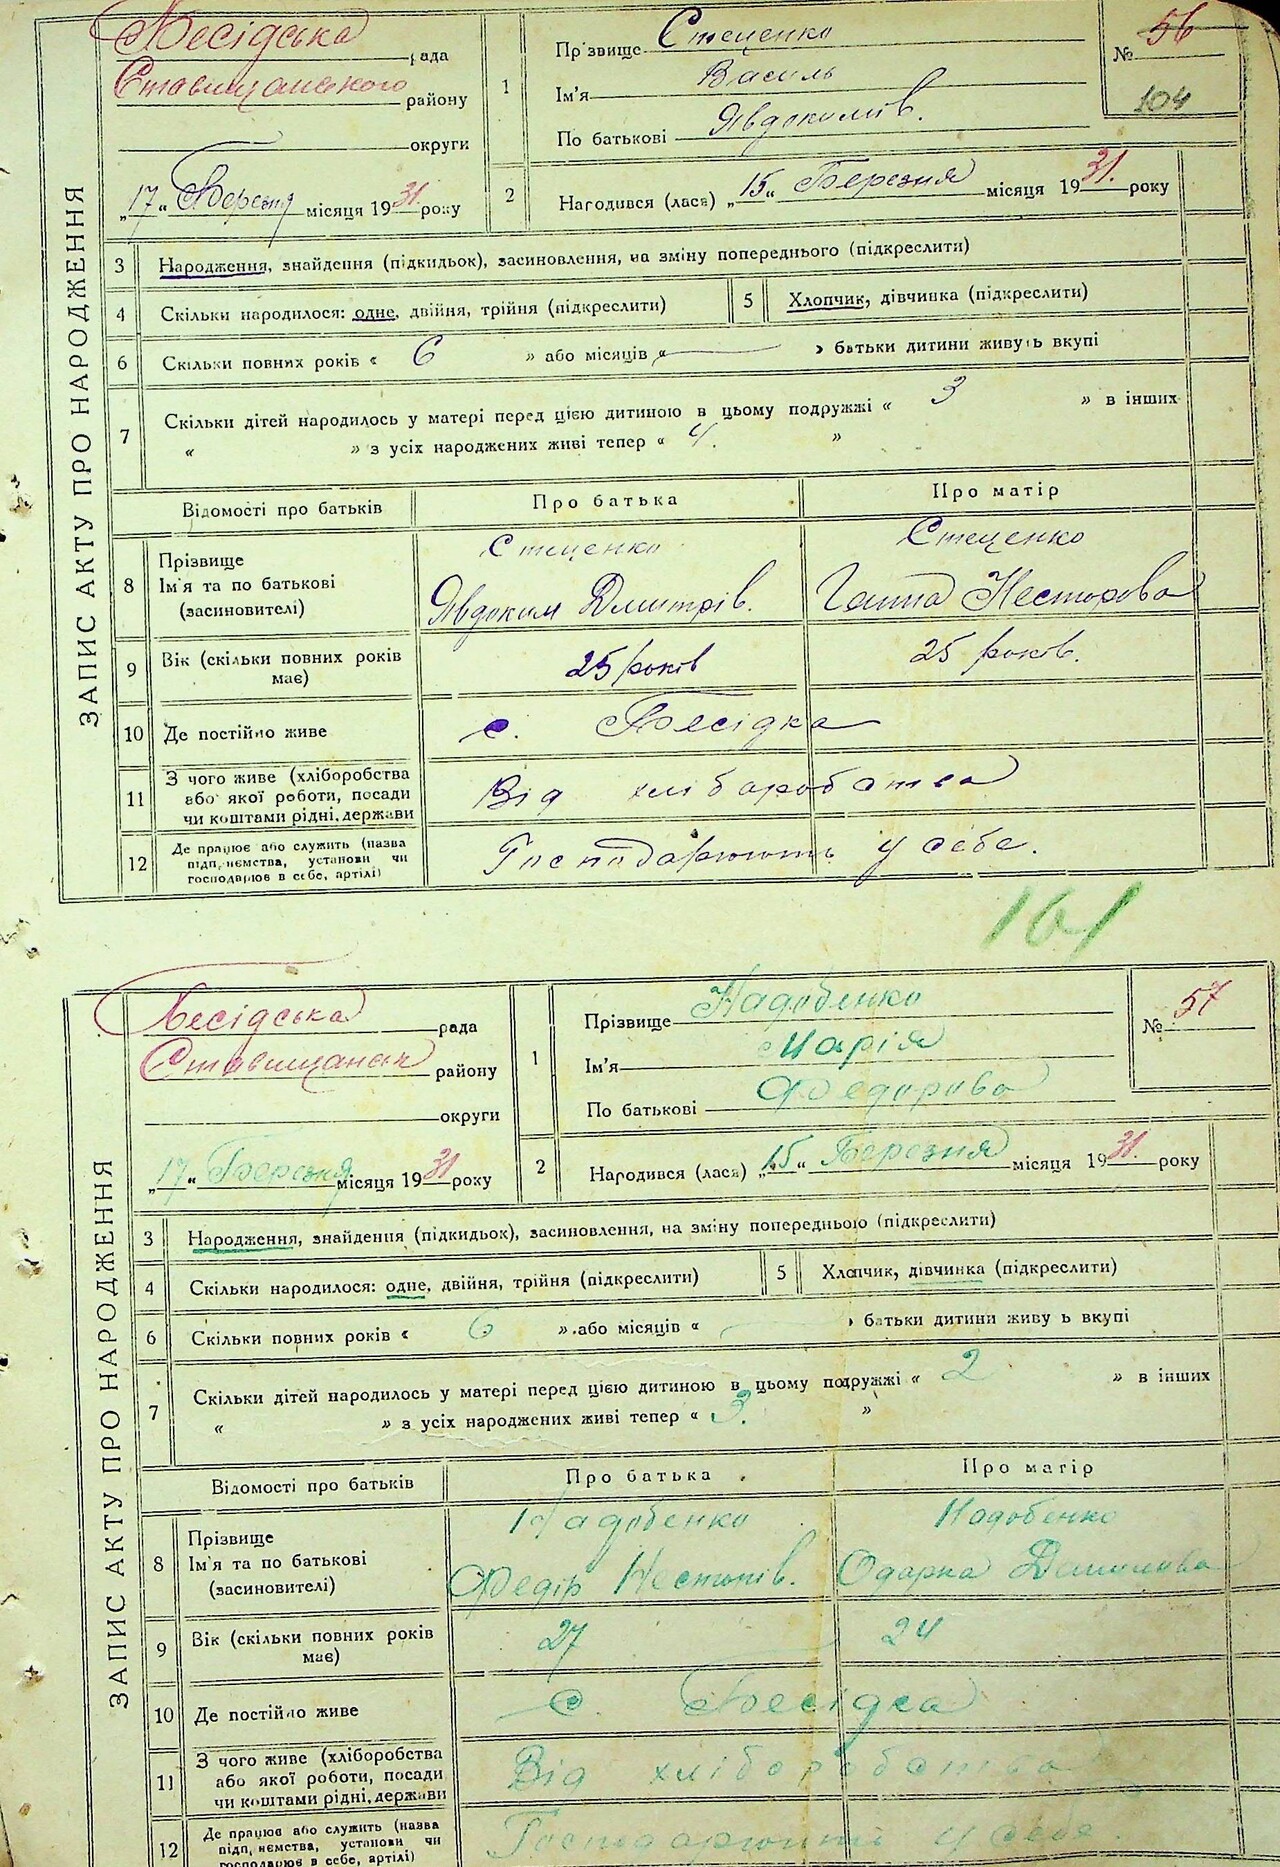 ЗАПИС АКТУ ПРО НАРОДЖЕННЯ
Бесідська рада
Ставищанського району
округи
„17" Березня місяця 1931 року
1
Прізвище Стеценко
Ім'я Василь
По батькові Явдокимів.
№ 56
104
2
Народився (лася) „15" Березня місяця 1931. року
3 Народження, знайдення (підкидьок), засиновлення, на зміну попереднього (підкреслити)
4 Скільки народилося: одне, двійня, трійня (підкреслити)
5 Хлопчик, дівчинка (підкреслити)
6 Скільки повних років « 6 » або місяців « — » батьки дитини живуть вкупі
7 Скільки дітей народилось у матері перед цією дитиною в цьому подружжі « 3 » в інших
« » з усіх народжених живі тепер « 4. »
Відомості про батьків Про батька Про матір
8 Прізвище
Ім'я та по батькові
(засиновителі)
Стеценко
Явдоким Дмитрів.
Стеценко
Ганна Несторова
9 Вік (скільки повних років
має)
25 років
25 років.
10 Де постійно живе с. Бесідка
11 З чого живе (хліборобства
або якої роботи, посади
чи коштами рідні, держави
Від хліборобства
12 Де працює або служить (назва
підприємства, установи чи
господарює в себе, артілі)
Господарюють у себе.
161
ЗАПИС АКТУ ПРО НАРОДЖЕННЯ
Бесідська рада
Ставищанськ району
округи
„17" Березня місяця 1931 року
1
Прізвище Надобенко
Ім'я Марія
По батькові Федорова
№ 57
2
Народився (лася) „15" Березня місяця 1931. року
3 Народження, знайдення (підкидьок), засиновлення, на зміну попередньою (підкреслити)
4 Скільки народилося: одне, двійня, трійня (підкреслити)
5 Хлопчик, дівчинка (підкреслити)
6 Скільки повних років « 6 » або місяців « — » батьки дитини живу ь вкупі
7 Скільки дітей народилось у матері перед цією дитиною в цьому подружжі « 2 » в інших
« » з усіх народжених живі тепер « 3. »
Відомості про батьків Про батька Про матір
8 Прізвище
Ім'я та по батькові
(засиновителі)
Надобенко
Федір Несторів.
Надобенко
Одарка
9 Вік (скільки повних років
має)
27
24
10 Де постійно живе с. Бесідка
11 З чого живе (хліборобства
або якої роботи, посади
чи коштами рідні, держави
Від хліборобства
12 Де працює або служить (назва
підприємства, установи чи
господарює в себе, артілі)
Господарюють у себе.